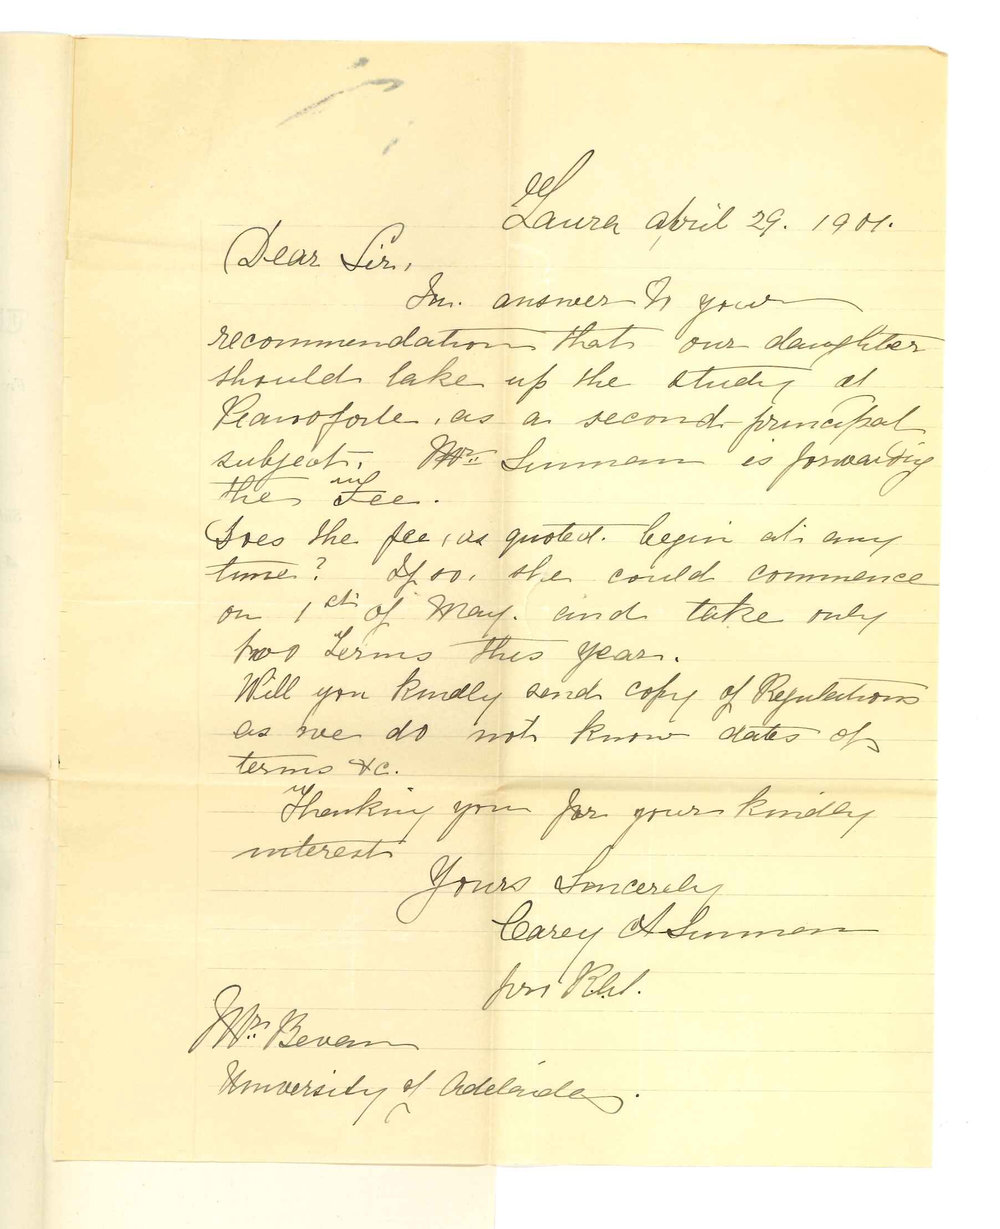 Laura April 29. 1901.
Dear Sir,
In answer to your
recommendation that our daughter
should take up the study of
Pianoforte, as a second principal
subject, Mr. Sunman is forwarding
the Fee.
Does the fee, as quoted. begin at any
time? If so, she could commence
on 1st of May. and take only
two Terms this year.
Will you kindly send copy of Regulations
as we do not know dates of
terms &c.
Thanking you for your kindly
interest
Yours Sincerely
Carey A Sunman
pro
Mr. Bevan
University of Adelaide.